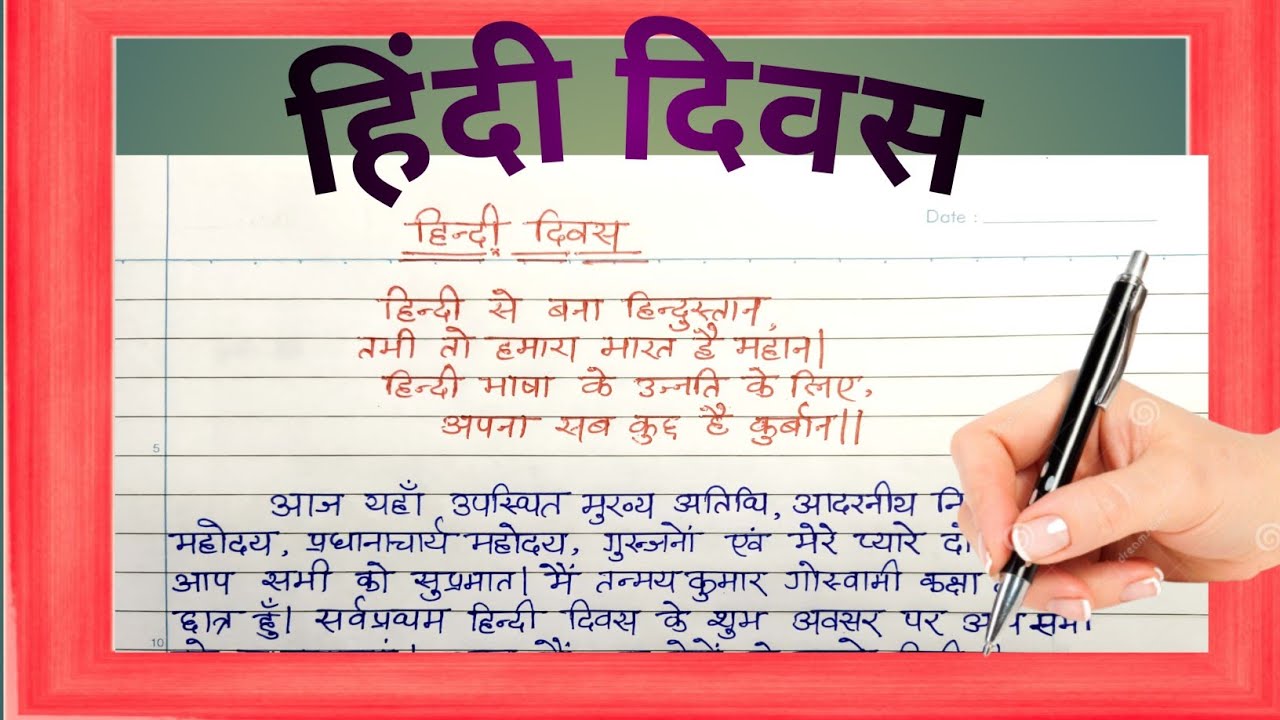 हिंदी दिवस
Date :
हिन्दी दिवस
हिन्दी से बना हिन्दुस्तान,
तभी तो हमारा भारत है महान।
हिन्दी भाषा के उन्नति के लिए,
अपना सब कुछ है कुर्बान॥
5
आज यहाँ उपस्थित मुख्य अतिथि, आदरनीय नि
महोदय, प्रधानाचार्य महोदय, गुरुजनों एवं मेरे प्यारे दो
आप सभी को सुप्रभात। मैं तन्मय कुमार गोस्वामी कक्षा
छात्र हूँ। सर्वप्रथम हिन्दी दिवस के शुभ अवसर पर आप सभी
10